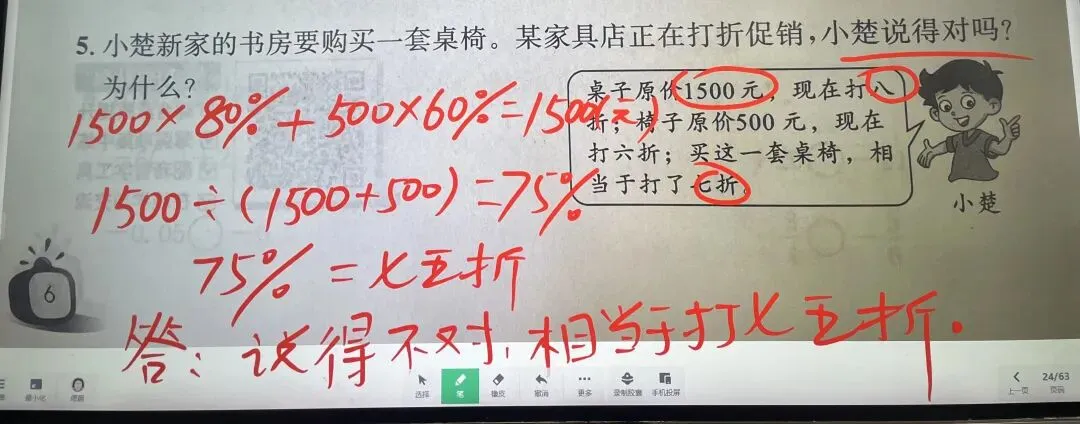 5. 小楚新家的书房要购买一套桌椅。某家具店正在打折促销，小楚说得对吗？
为什么？
桌子原价1500元，现在打八
折；椅子原价500元，现在
打六折；买这一套桌椅，相
当于打了七折。
小楚
1500×80%+500×60%=1500(元)
1500÷(1500+500)=75%
75%=七五折
答：说得不对，相当于打七五折.
6
最小化
选择
笔
橡皮
撤消
更多
录制胶囊
手机投屏
上一页
24/63
页码